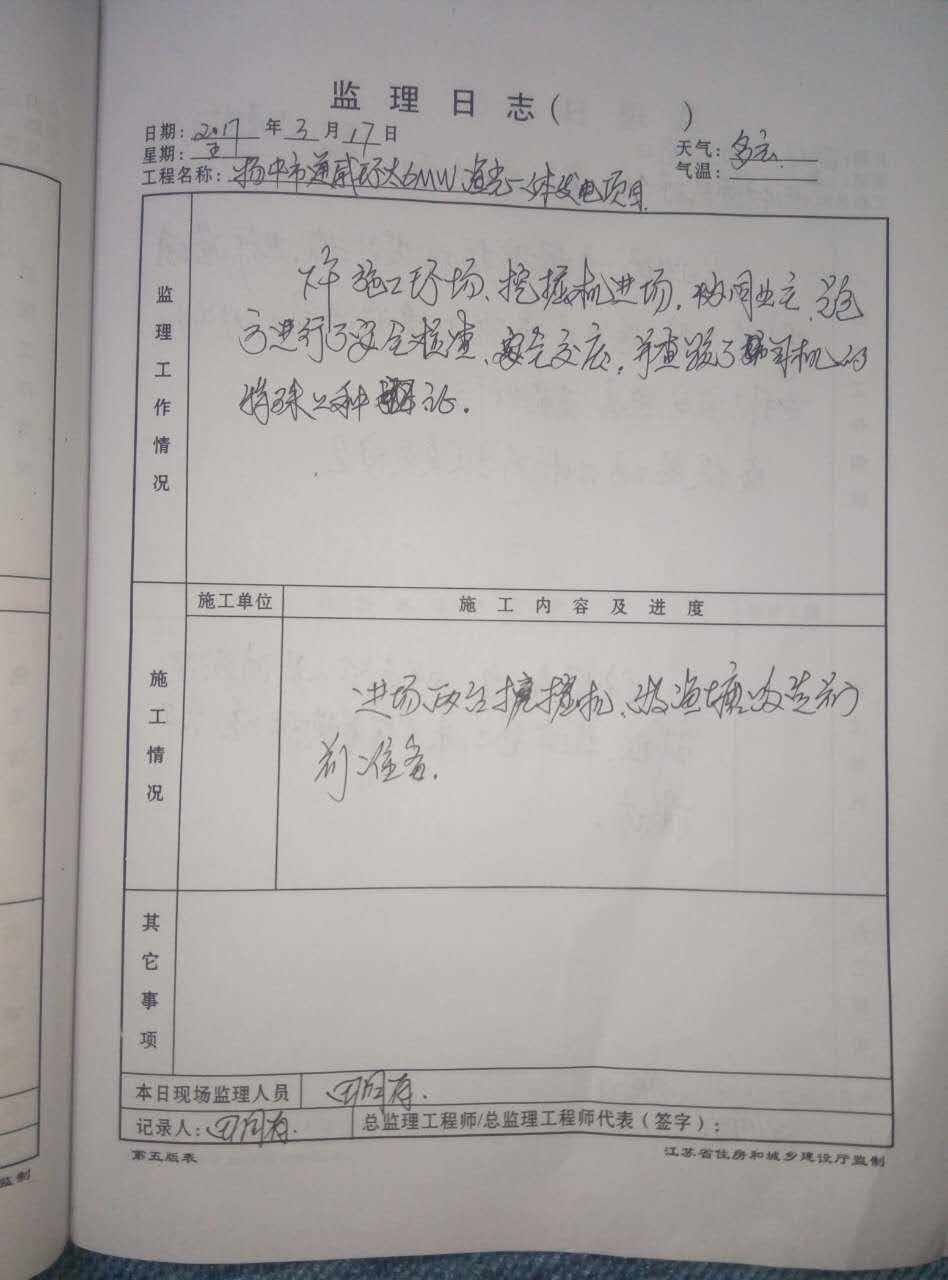 监理日志（ ）
日期：2017年3月17日
星期：五
天气：多云
气温：
工程名称：扬中市通威环太6MW渔光一体发电项目
监理工作情况
施工现场、挖掘机进场，协同业主、总包
方进行了安全检查、安全交底，并查验了司机的
特殊工种证。
施工情况
施工单位
施工内容及进度
进场两台挖掘机、做渔塘改造前
前准备．
其它事项
本日现场监理人员
记录人：
总监理工程师/总监理工程师代表（签字）：
第五版表
江苏省住房和城乡建设厅监制
监制